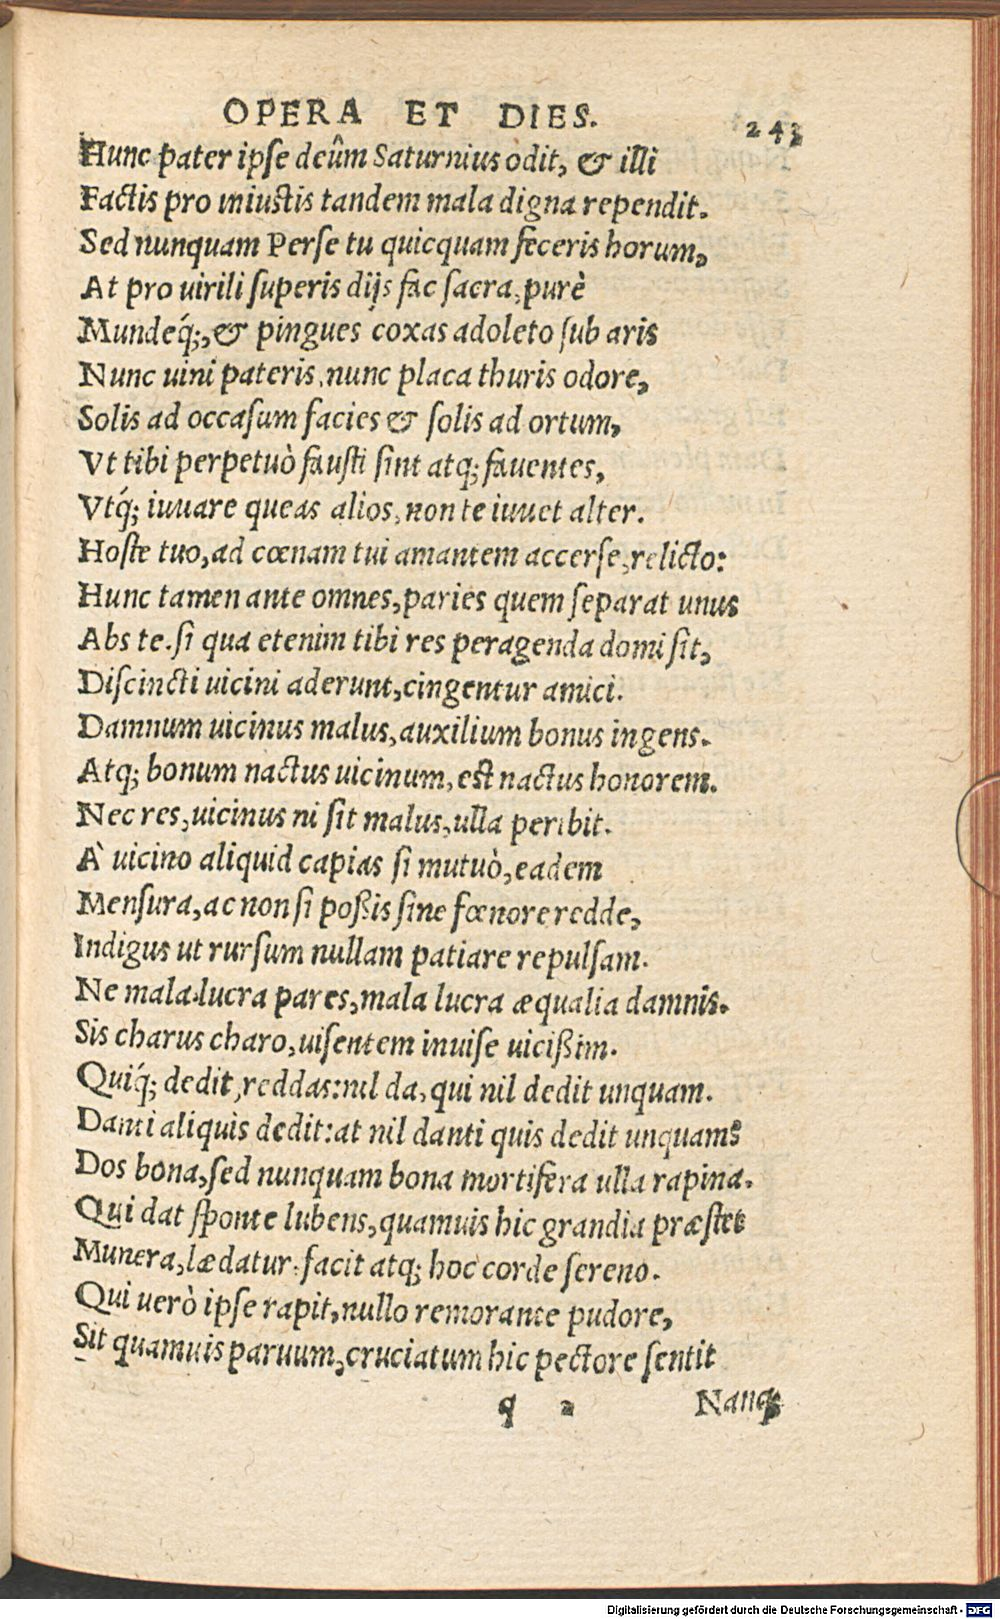 OPERA ET DIES. 243
Hunc pater ipse deûm Saturnius odit, & illi
Factis pro iniustis tandem mala digna rependit.
Sed nunquam Perse tu quicquam feceris horum,
At pro uirili superis dijs fac sacra, purè
Mundeq́;, & pingues coxas adoleto sub aris
Nunc uini pateris, nunc placa thuris odore,
Solis ad occasum facies & solis ad ortum,
Vt tibi perpetuò fausti sint atq; fauentes,
Vtq́; iuuare queas alios, non te iuuet alter.
Hoste tuo, ad cœnam tui amantem accerse, relicto:
Hunc tamen ante omnes, paries quem separat unus
Abs te. si qua etenim tibi res peragenda domi sit,
Discincti uicini aderunt, cingentur amici.
Damnum uicinus malus, auxilium bonus ingens.
Atq; bonum nactus uicinum, est nactus honorem.
Nec res, uicinus ni sit malus, ulla peribit.
À uicino aliquid capias si mutuò, eadem
Mensura, ac non si poßis sine fœnore redde,
Indigus ut rursum nullam patiare repulsam.
Ne mala lucra pares, mala lucra æqualia damnis.
Sis charus charo, uisentem inuise uicißim.
Quiq́; dedit, reddas: nil da, qui nil dedit unquam.
Danti aliquis dedit: at nil danti quis dedit unquam?
Dos bona, sed nunquam bona mortifera ulla rapina.
Qui dat sponte lubens, quamuis hic grandia præstet
Munera, lædatur. facit atq; hoc corde sereno.
Qui uerò ipse rapit, nullo remorante pudore,
Sit quamuis paruum, cruciatum hic pectore sentit
q 2 Nanq;
Digitalisierung gefördert durch die Deutsche Forschungsgemeinschaft - DFG